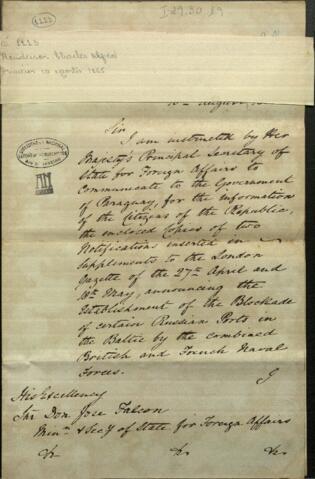 I-29.30.19
1223
Nº 1223
Henderson Charles Alfred
1855
August
Sir
I am instructed by Her
Majesty's Principal Secretary of
State for Foreign Affairs to
Communicate to the Government
of Paraguay, for the information
of the Citizens of the Republic,
the enclosed Copies of two
Notifications inserted in
Supplements to the London
Gazette of the 27th April and
18th May, announcing the
Establishment of the Blockade
of certain Russian Ports in
the Baltic by the combined
British and French Naval
Forces.
His Excellency
Don Jose Falcon
&Secy of State for Foreign Affairs
&c &c &c